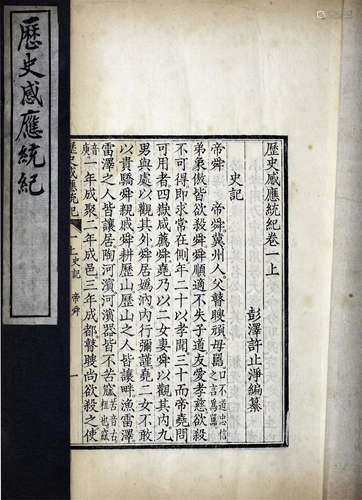 歷史感應統紀
歷史感應統紀卷一上
彭澤許止淨編纂
史記
帝舜　帝舜冀州人父瞽瞍頑母嚚口不道忠信之言爲嚚
弟象傲皆欲殺舜舜順適不失子道友愛孝慈欲殺
不可得即求常在側年二十以孝聞三十而帝堯問
可用者四嶽咸薦舜堯乃以二女妻舜以觀其內九
男與處以觀其外舜居嬀汭內行彌謹堯二女不敢
以貴驕舜親戚舜耕歷山歷山之人皆讓畔漁雷澤
雷澤之人皆讓居陶河濱河濱器皆不苦窳苦音古麤也窳
音庾一年成聚二年成邑三年成都瞽瞍尚欲殺之使
歷史感應統紀　史記　帝舜　一